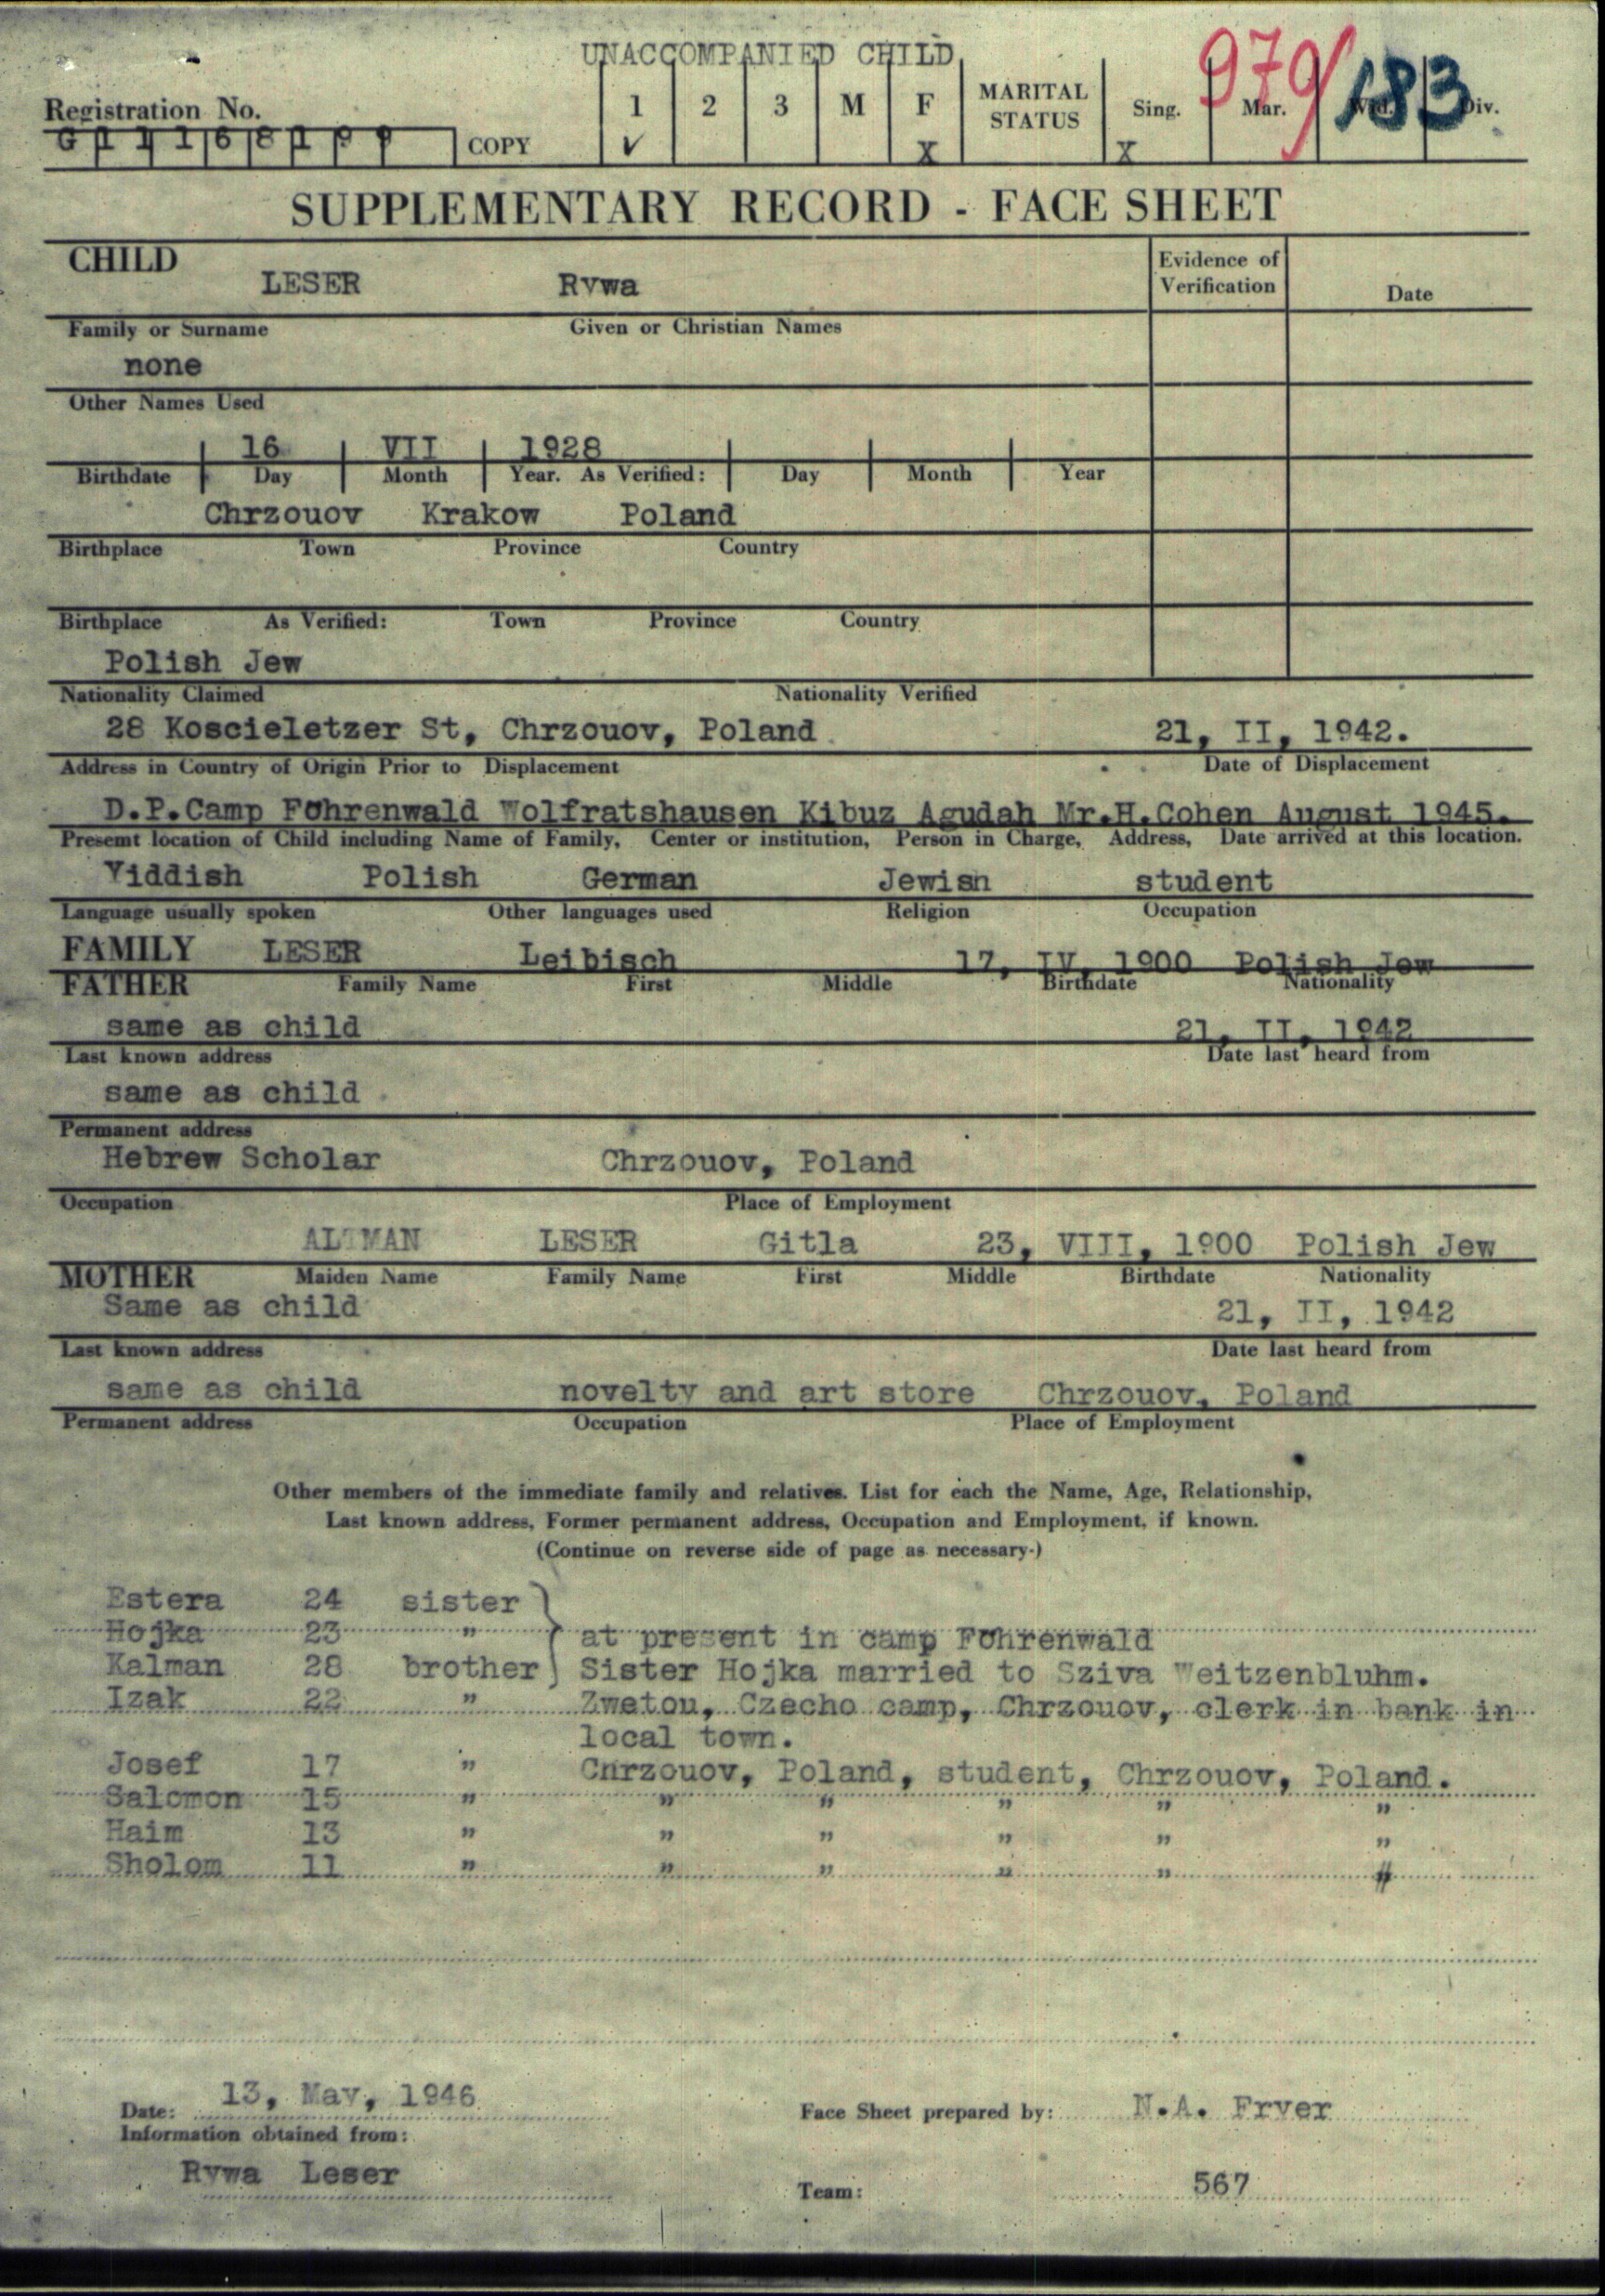 UNACCOMPANIED CHILD
979/183
Registration No. COPY 1 2 3 M F MARITAL STATUS Sing. Mar. Wid. Div.
✓ X X
SUPPLEMENTARY RECORD - FACE SHEET
CHILD Evidence of Verification Date
LESER Rywa
Family or Surname Given or Christian Names
none
Other Names Used
16 VII 1928
Birthdate Day Month Year. As Verified: Day Month Year
Chrzouov Krakow Poland
Birthplace Town Province Country
Birthplace As Verified: Town Province Country
Polish Jew
Nationality Claimed Nationality Verified
28 Koscieletzer St, Chrzouov, Poland 21, II, 1942.
Address in Country of Origin Prior to Displacement Date of Displacement
D.P.Camp Föhrenwald Wolfratshausen Kibuz Agudah Mr.H.Cohen August 1945.
Presemt location of Child including Name of Family, Center or institution, Person in Charge, Address, Date arrived at this location.
Yiddish Polish German Jewish student
Language usually spoken Other languages used Religion Occupation
FAMILY LESER Leibisch 17, IV, 1900 Polish Jew
FATHER Family Name First Middle Birthdate Nationality
same as child 21, II, 1942
Last known address Date last heard from
same as child
Permanent address
Hebrew Scholar Chrzouov, Poland
Occupation Place of Employment
ALTMAN LESER Gitla 23, VIII, 1900 Polish Jew
MOTHER Maiden Name Family Name First Middle Birthdate Nationality
Same as child 21, II, 1942
Last known address Date last heard from
same as child novelty and art store Chrzouov, Poland
Permanent address Occupation Place of Employment
Other members of the immediate family and relatives. List for each the Name, Age, Relationship,
Last known address, Former permanent address, Occupation and Employment, if known.
(Continue on reverse side of page as necessary.)
Estera 24 sister
Hojka 23 " at present in camp Föhrenwald
Kalman 28 brother Sister Hojka married to Sziva Weitzenbluhm.
Izak 22 " Zwetou, Czecho camp, Chrzouov, clerk in bank in
local town.
Josef 17 " Chrzouov, Poland, student, Chrzouov, Poland.
Salomon 15 " " " " " "
Haim 13 " " " " " "
Sholom 11 " " " " " "
Date: 13, May, 1946 Face Sheet prepared by: N.A. Fryer
Information obtained from:
Rywa Leser
Team: 567